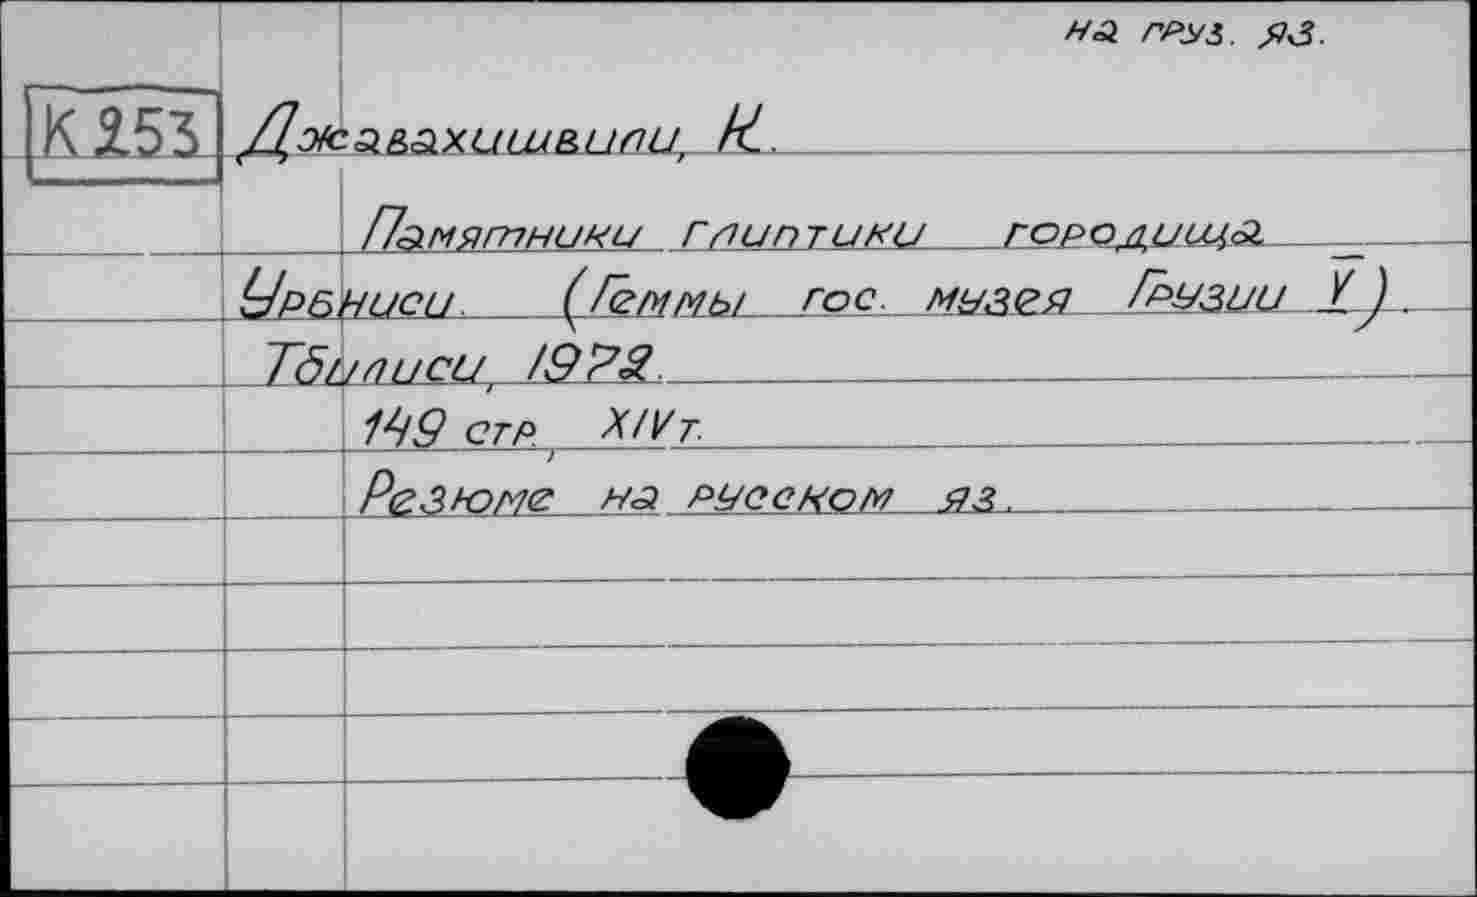 на груз. яз.
К 253 Джавахишвили, К.
Памятники глиптики городища
Урбниси. (Геммы гос. музея Грузии V).
Тбилиси, 1972.
149 стр, XIVт.
Резюме на русском яз.